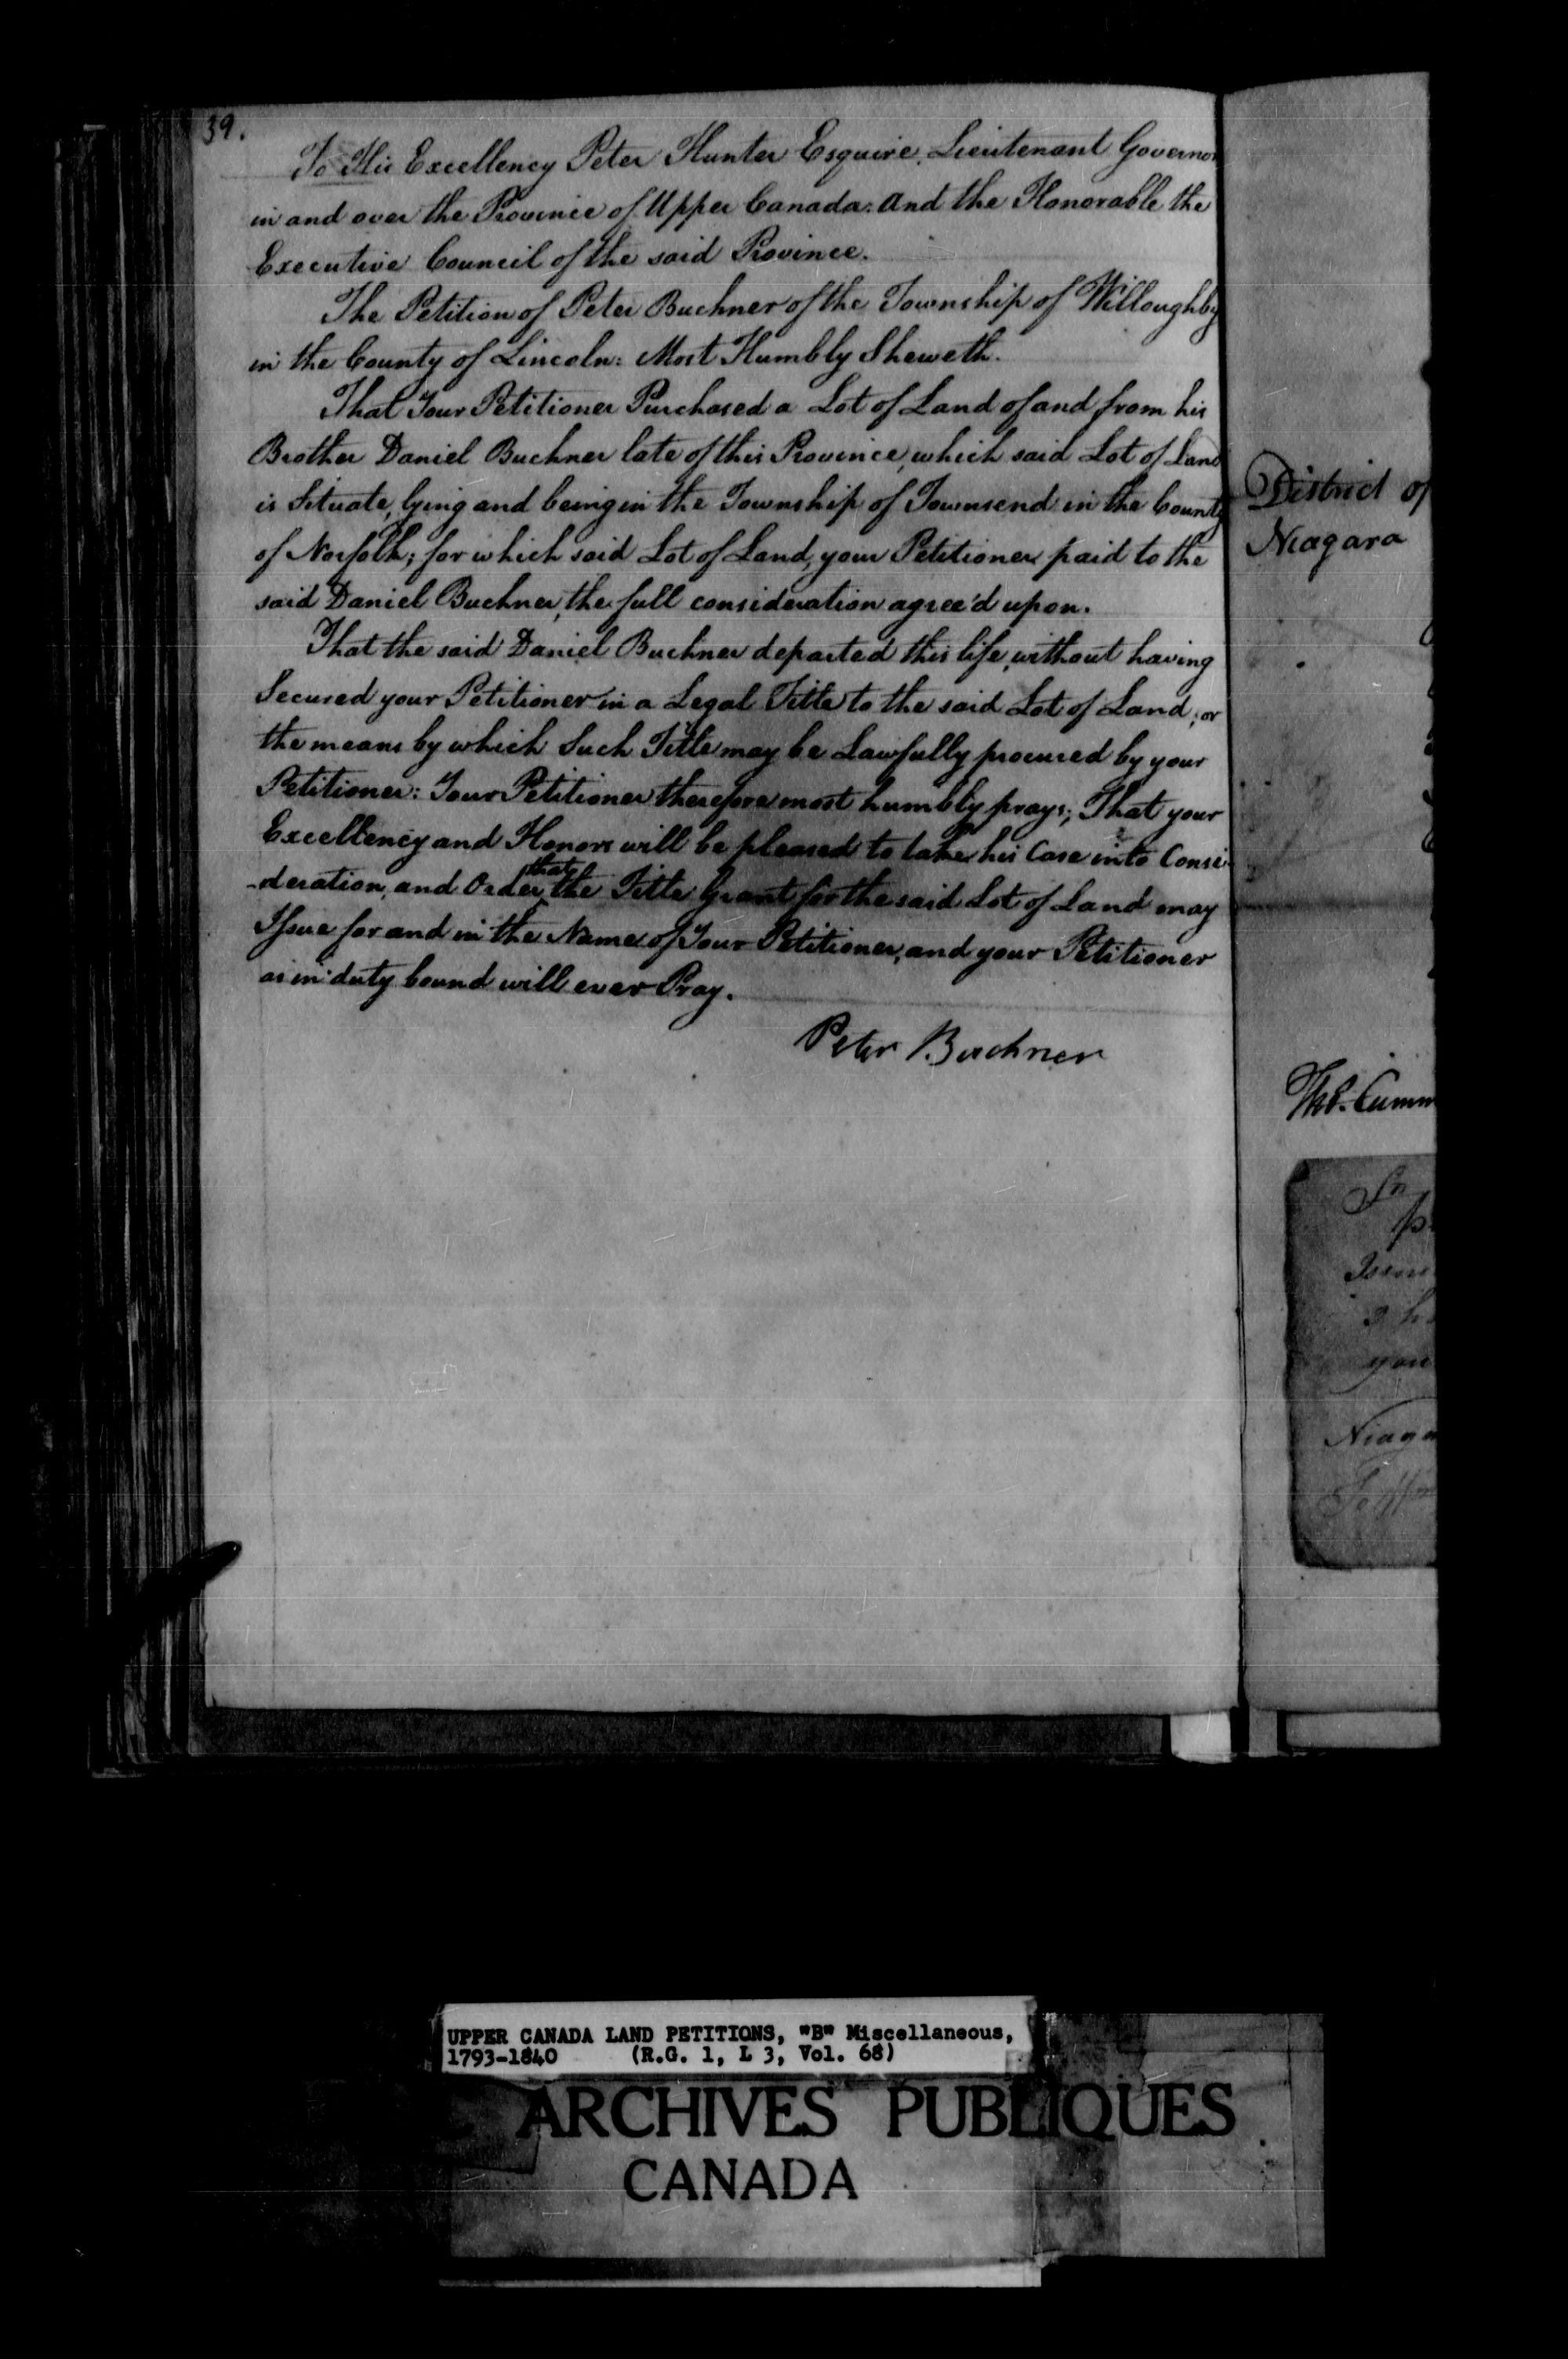 39.
To His Excellency Peter Hunter Esquire, Lieutenant Governor
in and over the Province of Upper Canada: And the Honorable the
Executive Council of the said Province.
The Petition of Peter Buchner of the Township of Willoughby
in the County of Lincoln: Most Humbly Sheweth.
That Your Petitioner Purchased a Lot of Land of and from his
Brother Daniel Buchner late of this Province, which said Lot of Land
is Situate, lying and being in the Township of Townsend in the County
of Norfolk; for which said Lot of Land, your Petitioner paid to the
said Daniel Buchner, the full consideration agree'd upon.
That the said Daniel Buchner departed this life, without having
Secured your Petitioner in a Legal Title to the said Lot of Land, or
the means by which Such Title may be Lawfully procured by your
Petitioner: Your Petitioner therefore most humbly prays; That your
Excellency and Honors will be pleased to take his Case into Consi-
-deration, and Order that the Title Grant for the said Lot of Land may
Issue for and in the Name of Your Petitioner, and your Petitioner
as in duty bound will ever Pray.
Peter Buchner
District of
Niagara
Thos. Cumm
Niaga
UPPER CANADA LAND PETITIONS, "B" Miscellaneous,
1793-1840 (R.G. 1, L 3, Vol. 68)
ARCHIVES PUBLIQUES
CANADA